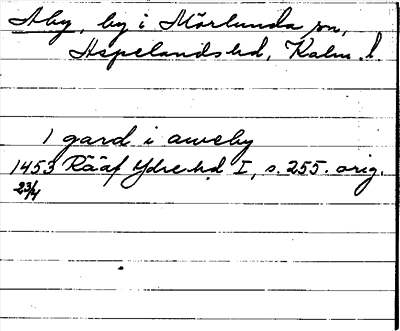 Åby, by i Mörlunda sn,
Aspelands hd, Kalm. l.
1 gard i aweby
1453 Rääf Ydre hd I, s. 255. orig.
23/4